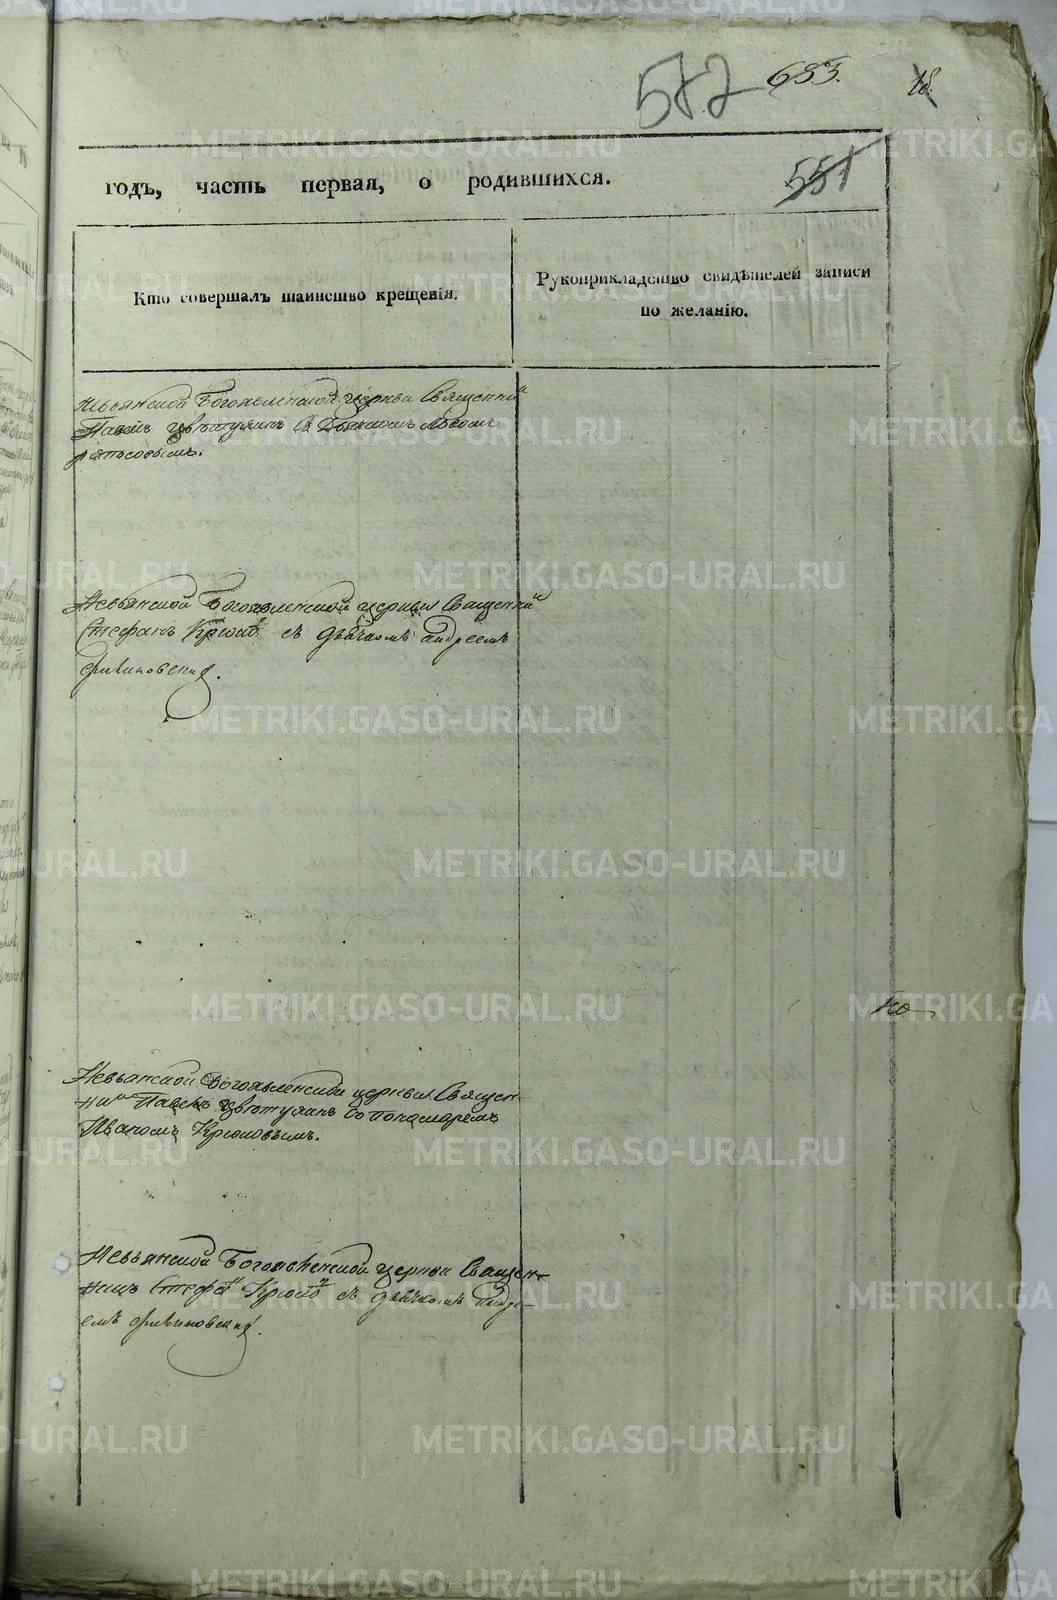 572 685. 18.
551
годъ, часть первая, о родившихся.
Кто совершалъ таинство крещенія.
Рукоприкладство свидѣтелей записи
по желанію.
Невьянской Богоявленской церкви Священникъ
Павелъ
Невьянской Богоявленской церкви Священникъ
Стефанъ Крюковъ съ дьячкомъ Андреемъ
Невьянской Богоявленской церкви Священ
никъ Павелъ со пономаремъ
Иваномъ Крюковымъ.
Невьянской Богоявленской церкви Священ-
никъ Стефанъ Крюковъ съ дьячкомъ Андре-
емъ
METRIKI.GASO-URAL.RU